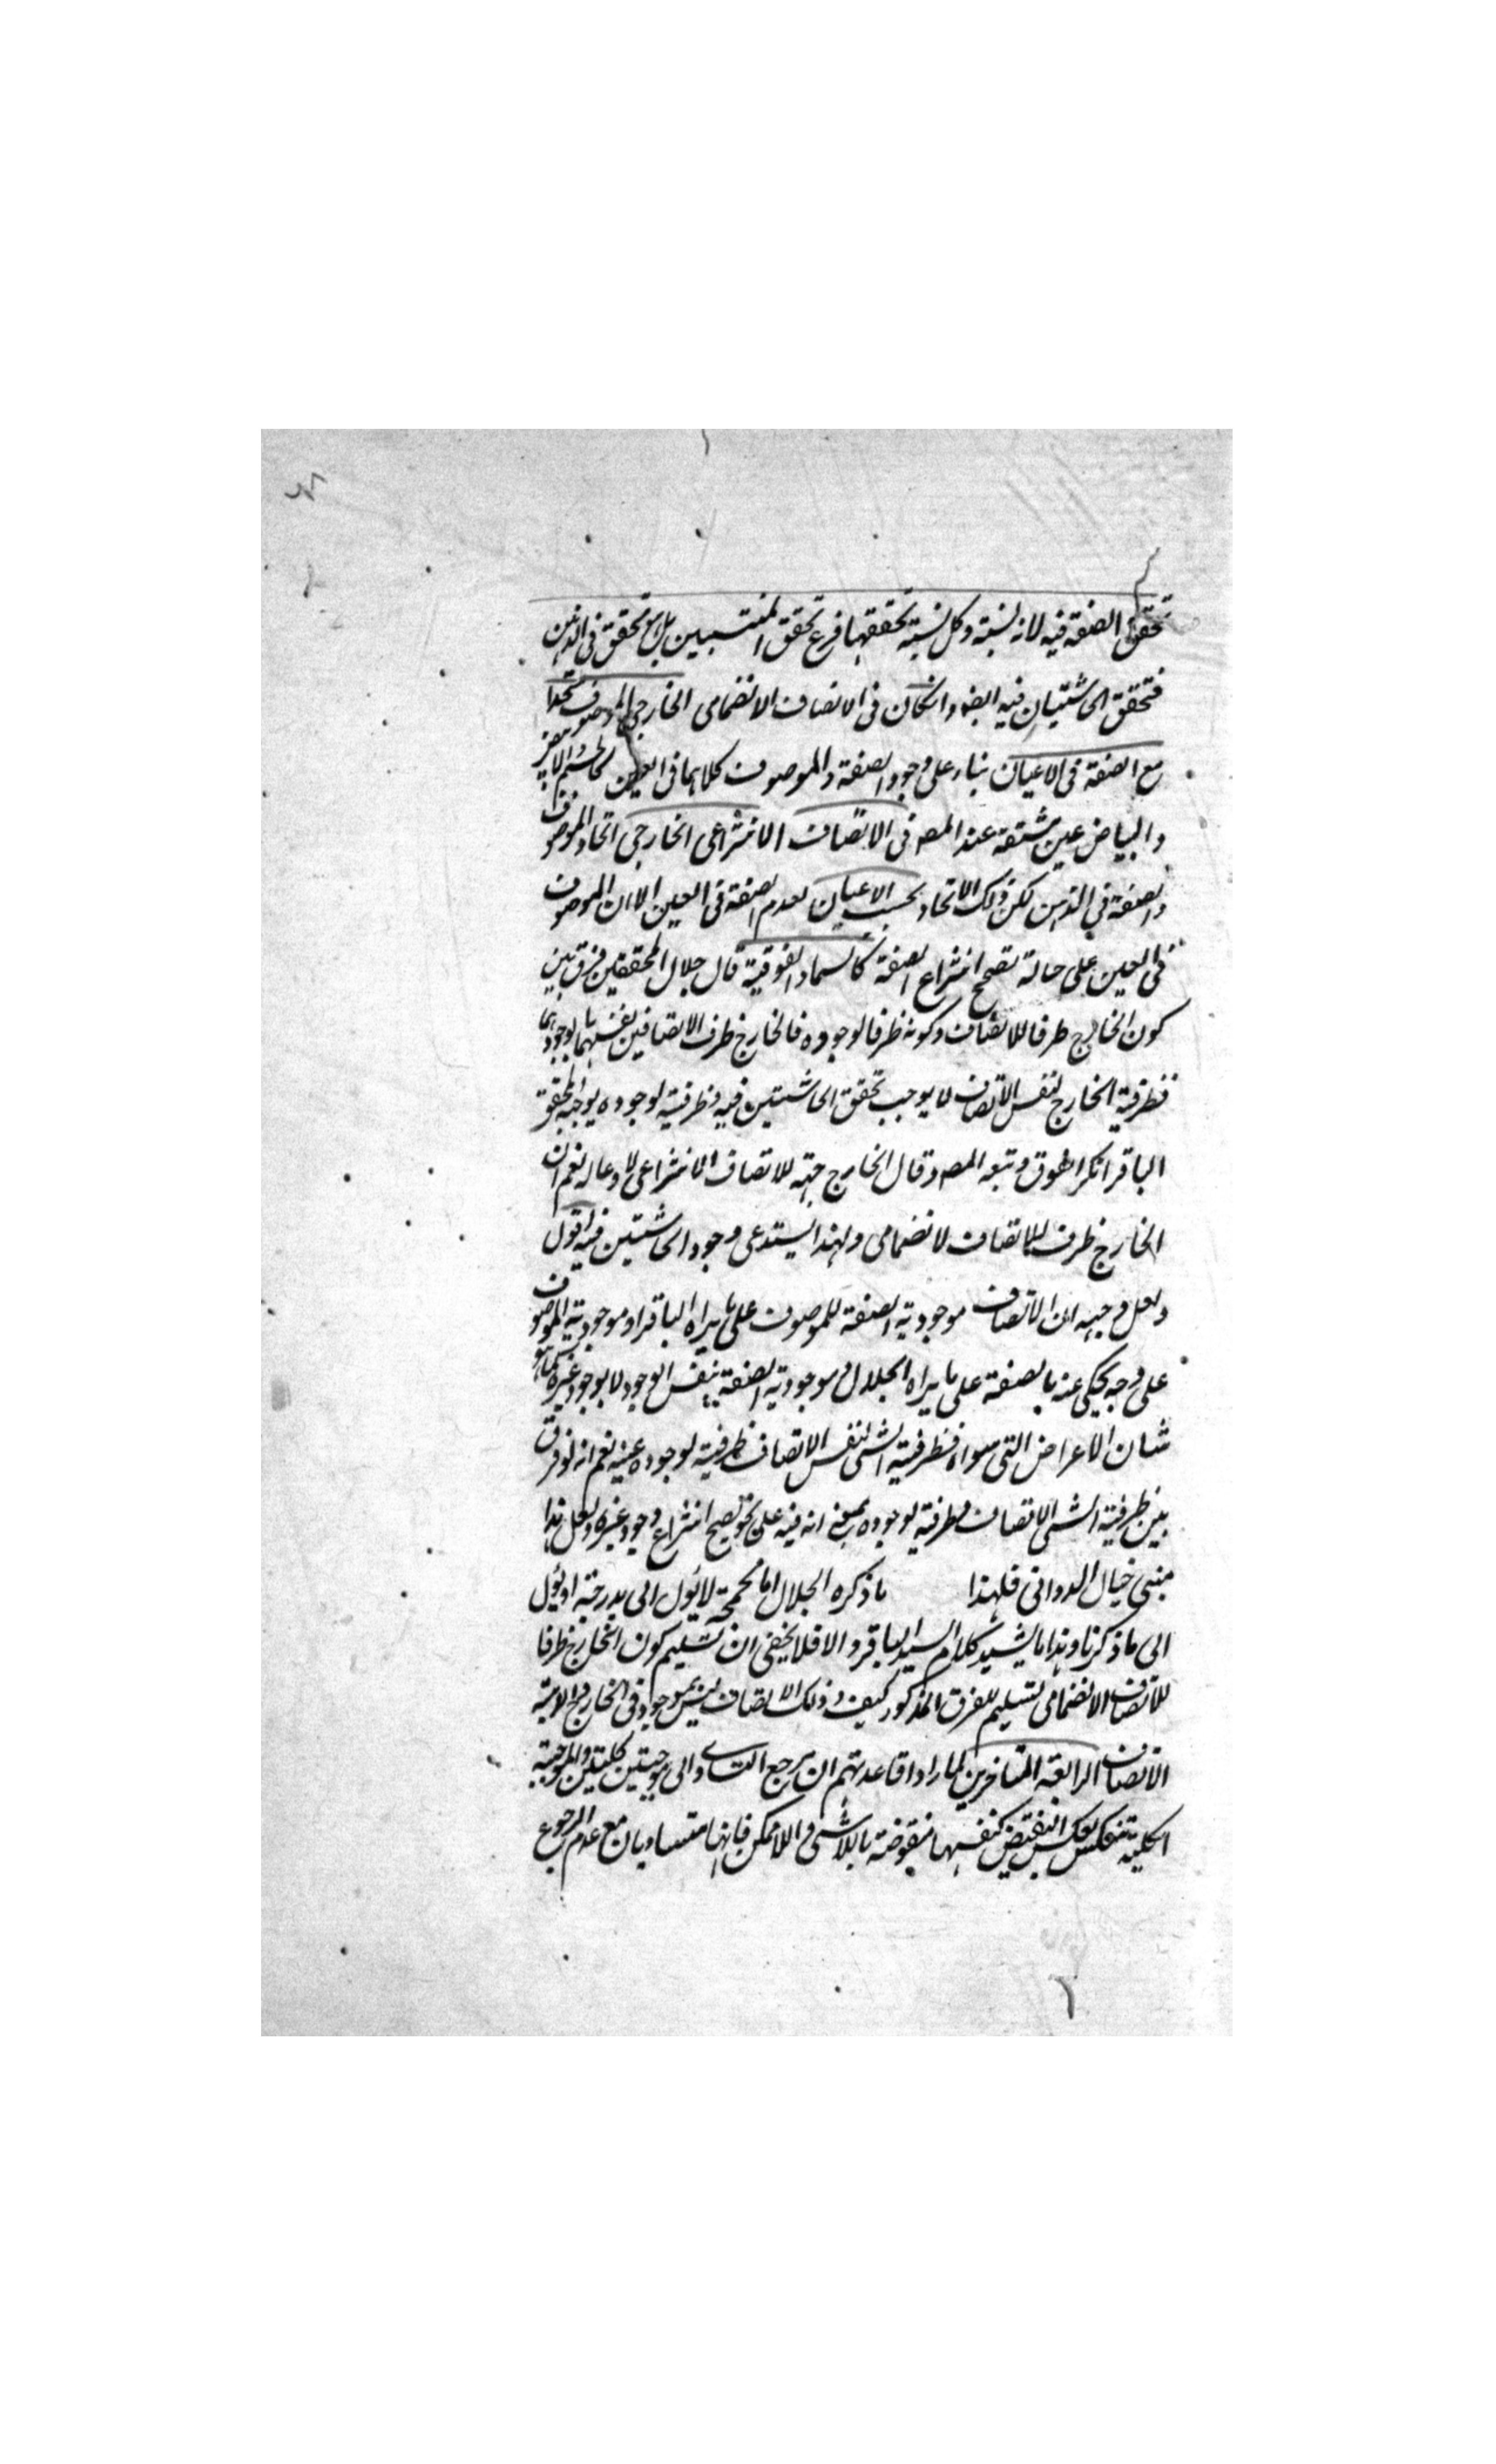 تحقق الصفة فيه لانه نسبته وكل نسبته تحققها فرع تحقق المنتسبين بل انما يتحقق في الذهن
فتحقق الحاشيتان فيه ايضه وانكان في الاتصاف الانضمامى الخارجى الموصوف متحدا
مع الصفة فى الاعيان بناء على وجود الصفة والموصوف كلاهما فى العين كالجسم الابيض
والبياض عين مشتقه عند المصه فى الاتصاف الانتزاعى الخارجى اتحاد الموصوف
والصفة في الذهن لكن ذلك الاتحاد بحسب الاعيان لعدم الصفة فى العين الا ان الموصوف
فى العين على حالة تصحح انتزاع الصفة كالسماء والفوقية قال جلال المحققين فرق بين
كون الخارج ظرفا للاتصاف وكونه ظرفا لوجوده فالخارج ظرف الاتصافين بنفسهما لا بوجودهما
فظرفية الخارج لنفس الاتصاف لا يوجب تحقق الحاشيتين فيه وظرفيته لوجوده يوجبه المحقق
الباقر انكر الفرق وتبعه المصه وقال الخارج جهة للاتصاف الانتزاعى لا وعاله نعم ان
الخارج ظرف للاتصاف لانضمامى ولهذا يستدعى وجود الحاشيتين فيه اقول
ولعل وجهه ان الاتصاف موجودية الصفة للموصوف على ما يراه الباقر او موجودية الموصوف
على وجه يحكى عنه بالصفة على ما يراه الجلال وموجودية الصفة بنفس الوجود لا بوجود غيره كما هو
شان الاعراض التى سواه فظرفية الشئ لنفس الاتصاف ظرفية لوجوده عينه نعم انه لو فرق
بين ظرفية الشئ الاتصاف وظرفية لوجوده بمعنى انه فيه على نحو تصحح انتزاع وجود غيره ولعل هذا
مبنى خيال الدوانى فلهذا ما ذكره الجلال اما لا يؤل الى او يؤل
الى ما ذكرنا وهذا ما يشيد كلام السيد الباقر والا فلا يخفى ان تسليم كون الخارج ظرفا
للاتصاف الانضمامى تسليم للفرق المذكور كيف وذلك الاتصاف ليس بموجود فى الخارج
الاتصاف الرابعة المتاخرين لما راوا قاعدتهم ان مرجع التساوى الى موجبتين كليتين والموجبة
الكلية تنعكس بعكس النقيض كنفسها منقوضة باللاشئ واللاممكن فانهما متساويان مع عدم الرجوع